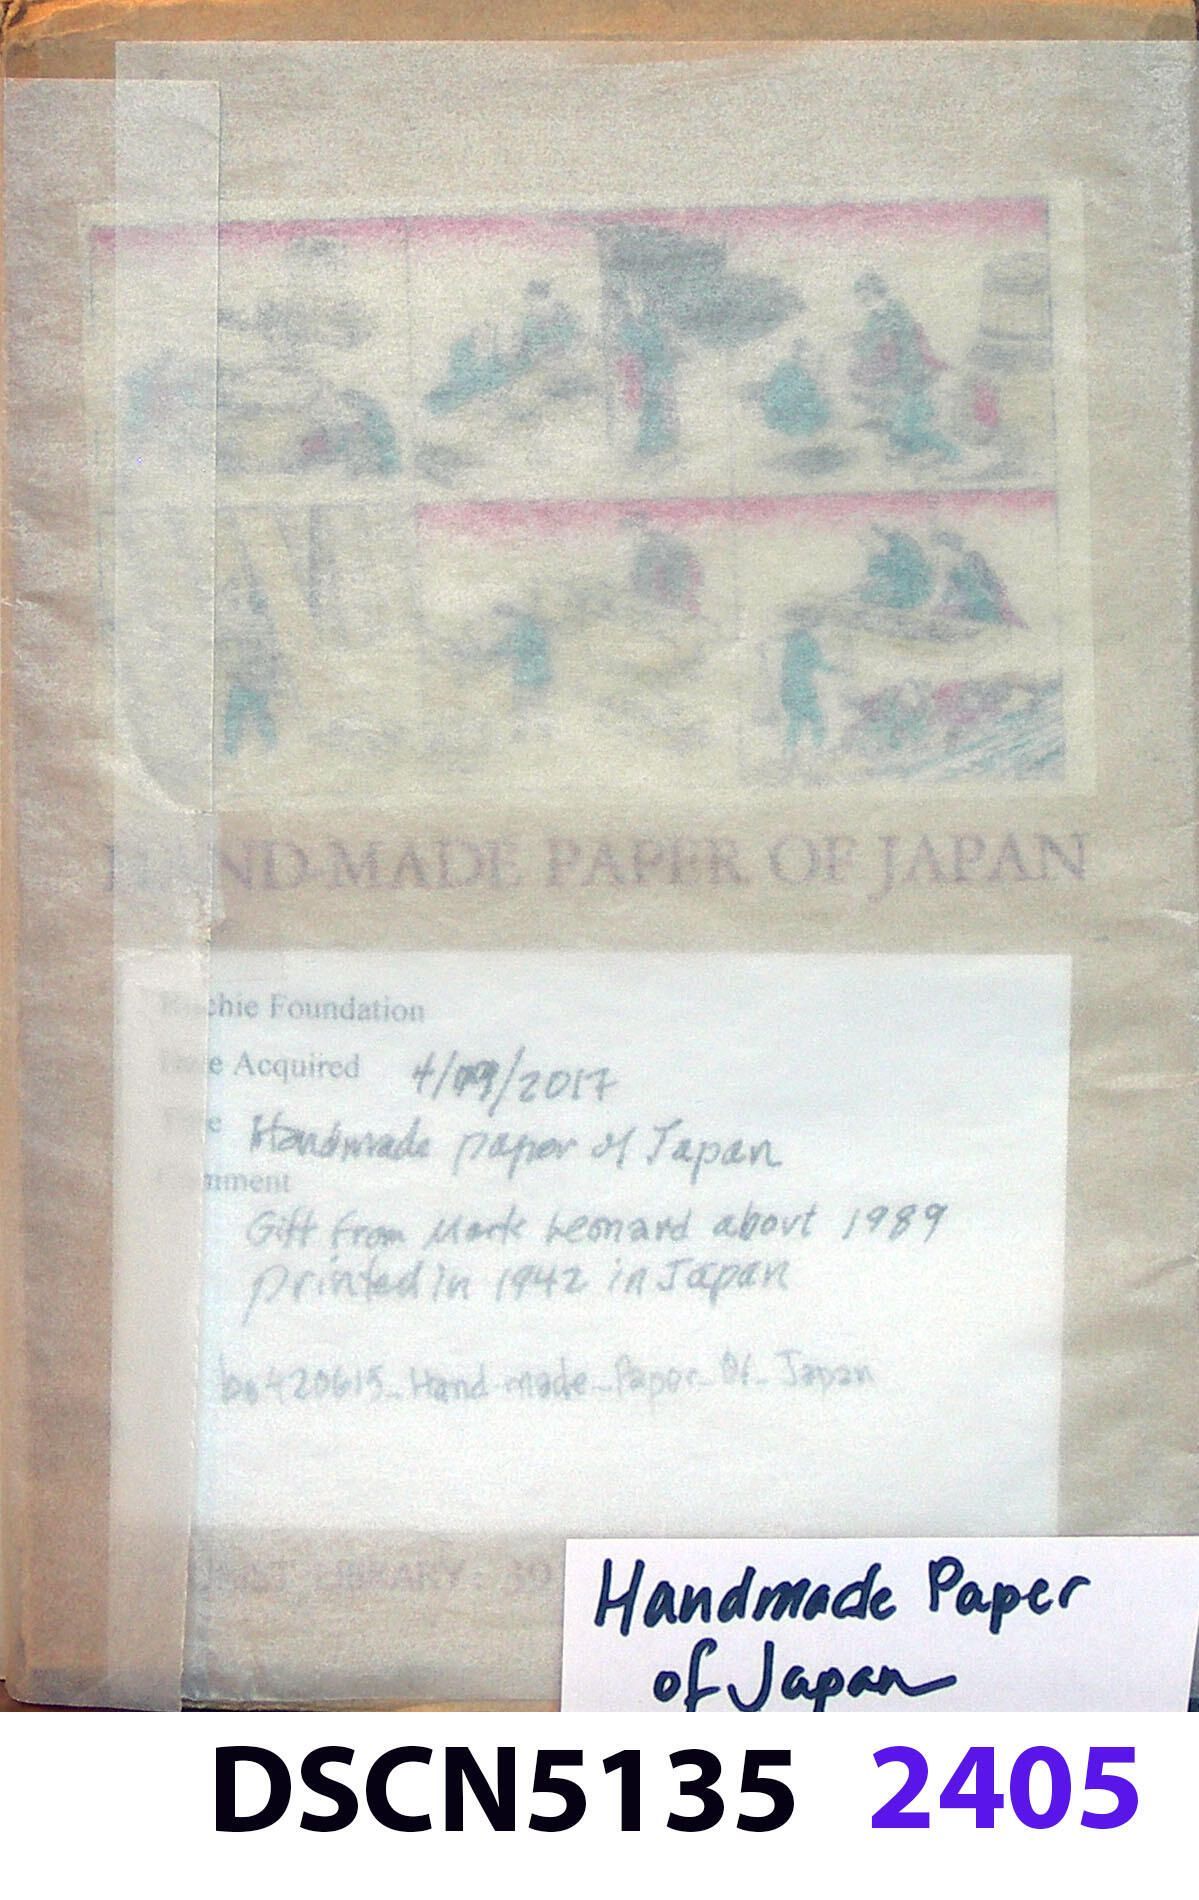 HAND-MADE PAPER OF JAPAN
Ritchie Foundation
Date Acquired 4/19/2017
Title Handmade paper of Japan
Comment
Gift from Mark Leonard about 1989
printed in 1942 in Japan
bo420615_Hand-made_Paper_Of_Japan
LIBRARY:
Handmade Paper
of Japan
DSCN5135 2405